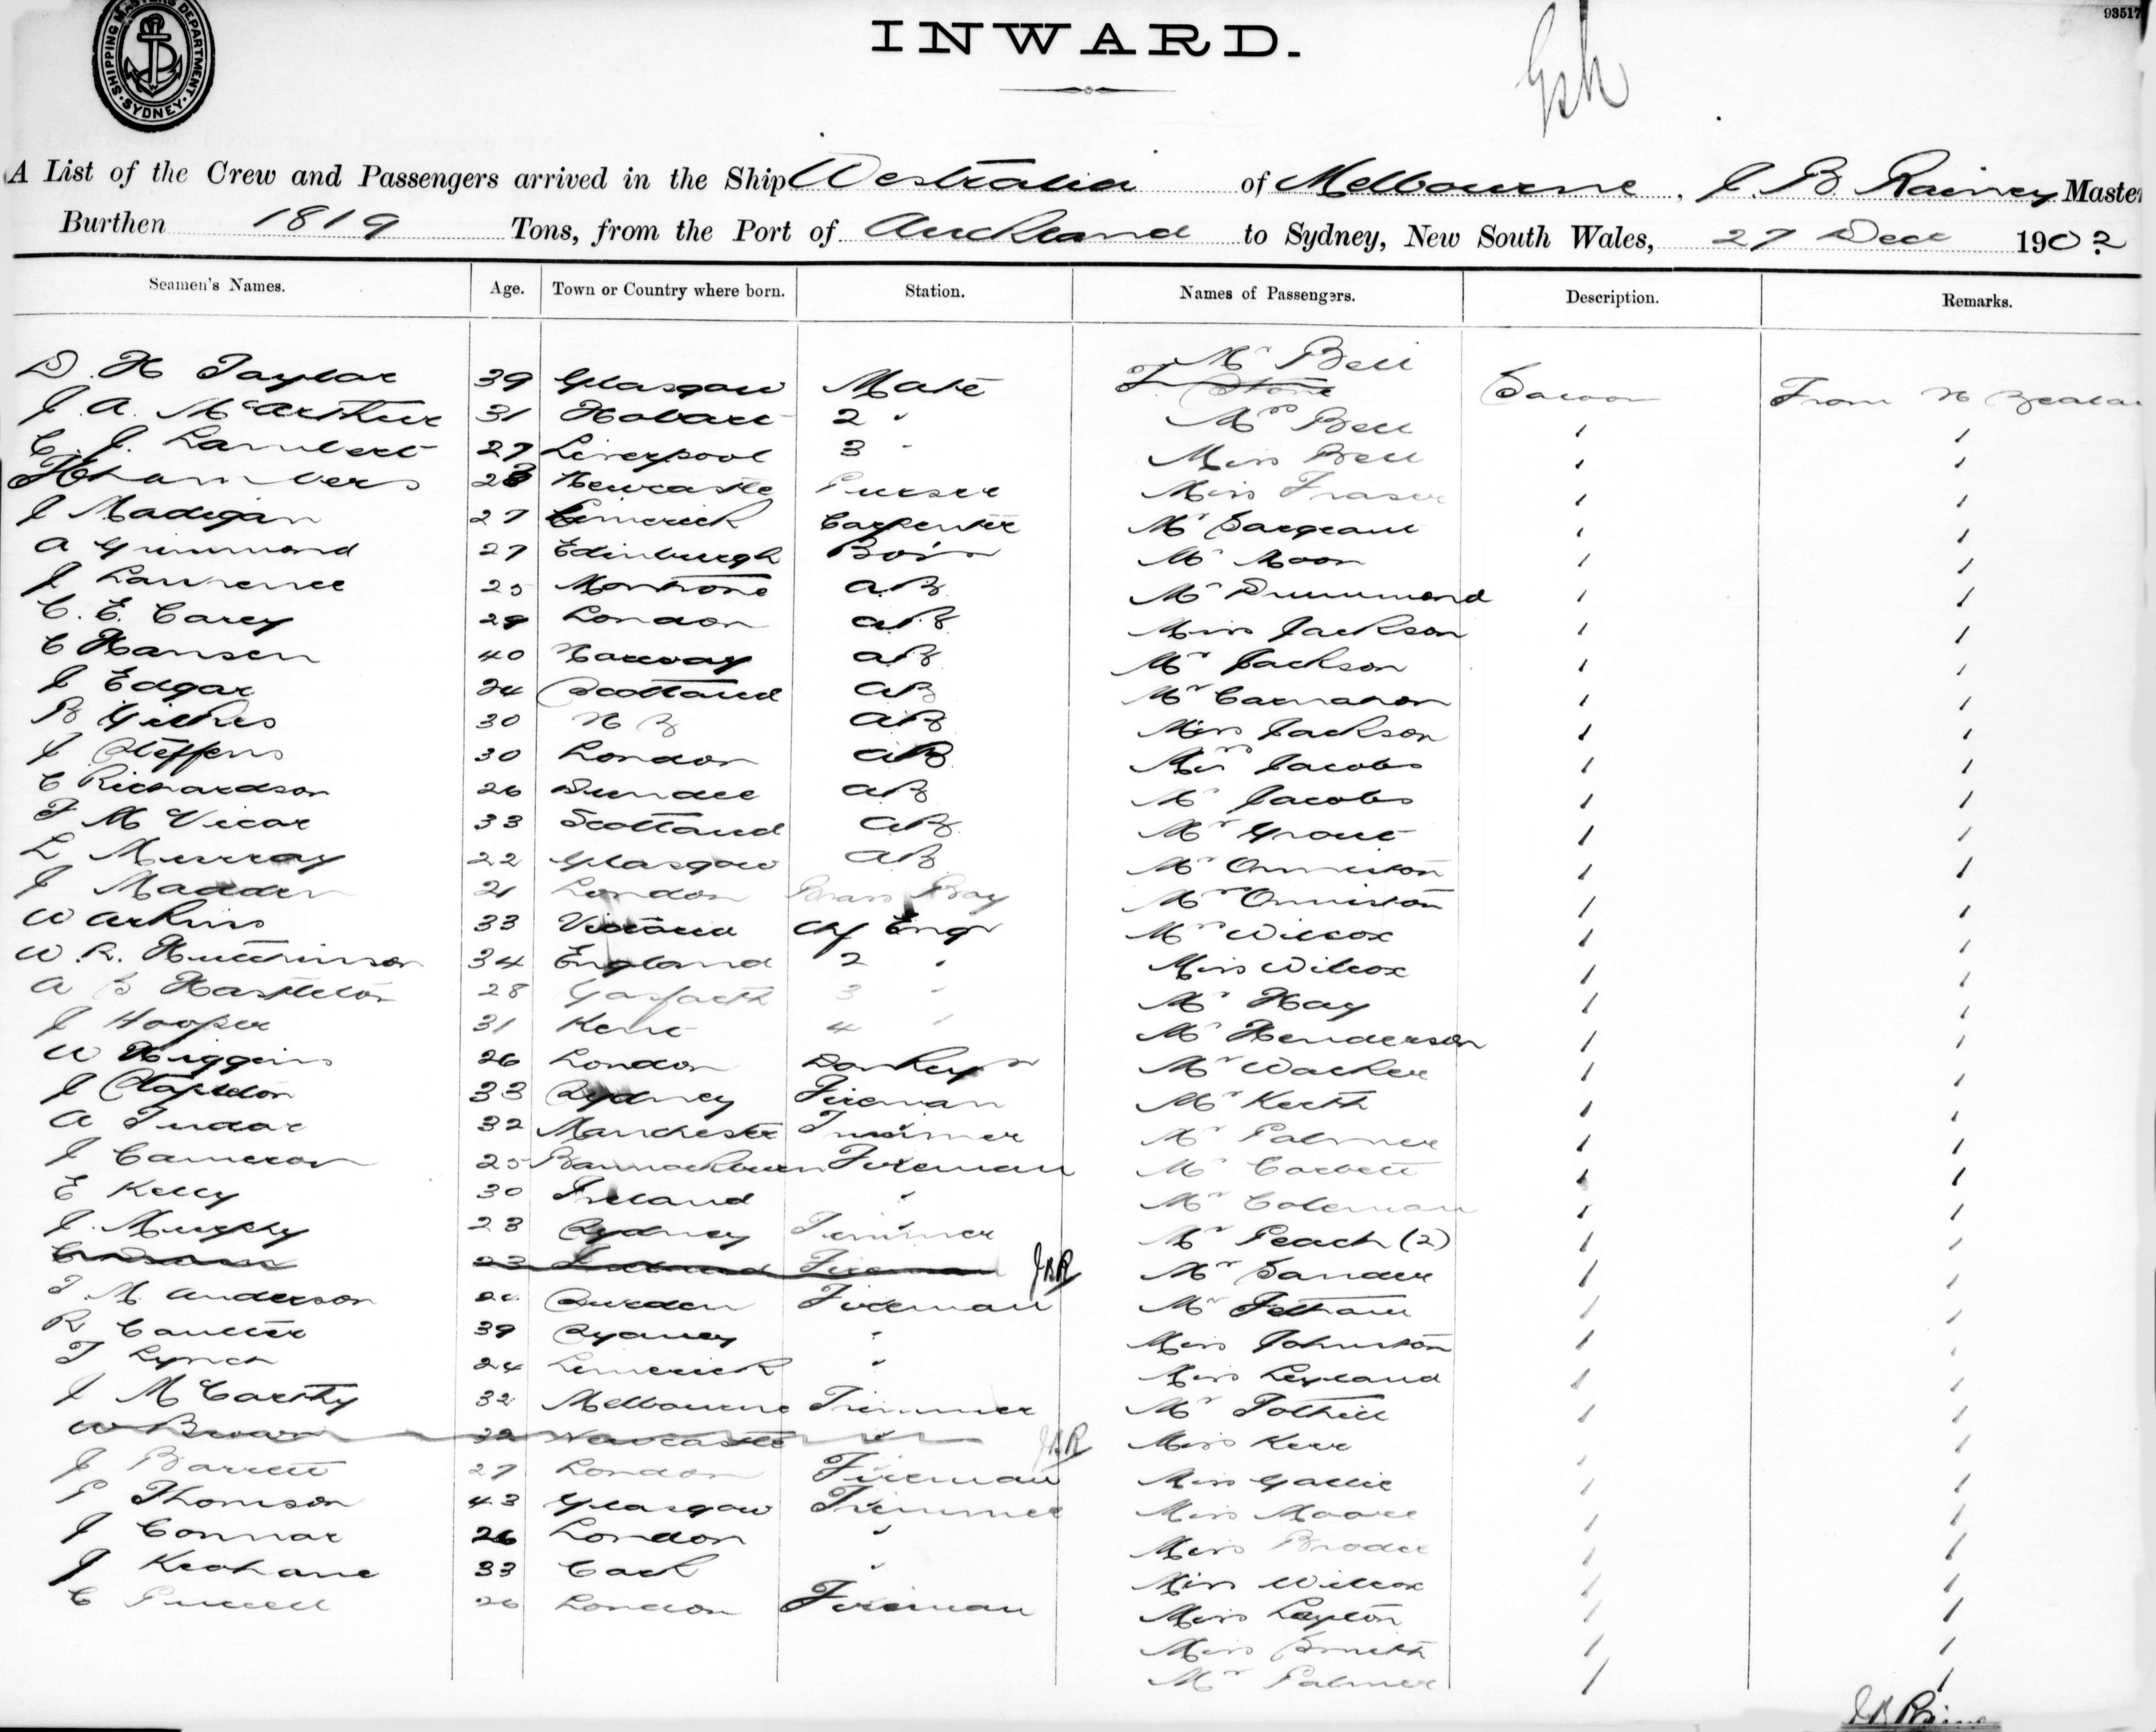 93517
SHIPPING MASTERS DEPARTMENT
SYDNEY
INWARD.
A List of the Crew and Passengers arrived in the Ship Westralia of Melbourne, J. B. Rainey Master
Burthen 1819 Tons, from the Port of Auckland to Sydney, New South Wales, 27 Dec 1902
Seamen's Names. Age. Town or Country where born. Station. Names of Passengers. Description. Remarks.
D. H Taylor 39 Glasgow Mate Mr Bell Saloon From N Zealan
J. A. McArthur 31 Hobart 2 " Mrs Bell
C. J. Lambert 27 Liverpool 3 " Miss Bell
Chambers 23 Newcastle Purser Miss Fraser
J Madigan 27 Limerick Carpenter Mr Sargeant
A Grimmond 27 Edinburgh Bos'n Mr Moon
J Lawrence 25 Montrose AB Mr Drummond
C. E. Carey 29 London AB Miss Jackson
C Hansen 40 Norway AB Mr Jackson
J Edgar 24 Scotland AB Mr Carnahan
R Gilkes 30 N Z AB Miss Jackson
J Steffens 30 London AB Mrs Jacobs
C Richardson 26 Dundee AB Mr Jacobs
F McVicar 33 Scotland AB Mr Grant
L Murray 22 Glasgow AB Mr Ormiston
J Madden 21 London Brass Boy Mrs Ormiston
W Arkins 33 Victoria Chf Engr Mr Wilcox
W. R. Hutchinson 34 England 2 " Miss Wilcox
A B Hastleton 28 3 " Mr Hay
J Hooper 31 Kent 4 " Mr Henderson
W Higgins 26 London Donkeyn Mr Walker
J Stapleton 33 Sydney Fireman Mr Keith
A Tudor 32 Manchester Trimmer Mr Palmer
J Cameron 25 Bannockburn Fireman Mr Corbett
E Kelly 30 Ireland " Mr Coleman
J. Murphy 23 Sydney Trimmer Mr Peach (2)
23 Fireman JBR Mr Sander
T. M. Anderson Sweden Fireman Mr
R Coulter 39 Sydney " Miss Johnston
T Lynch 24 Limerick " Miss Leyland
J McCarthy 32 Melbourne Trimmer Mr Tothill
W Brown 32 Newcastle " JBR Miss Kerr
J Barrett 27 London Fireman Miss Gallie
P Thomson 43 Glasgow Trimmer Miss Moore
J Connor 26 London " Miss Brodie
J Keohane 33 Cork " Miss Wilcox
C Purcell 26 London Fireman Miss Layton
Miss Smith
Mr Palmer